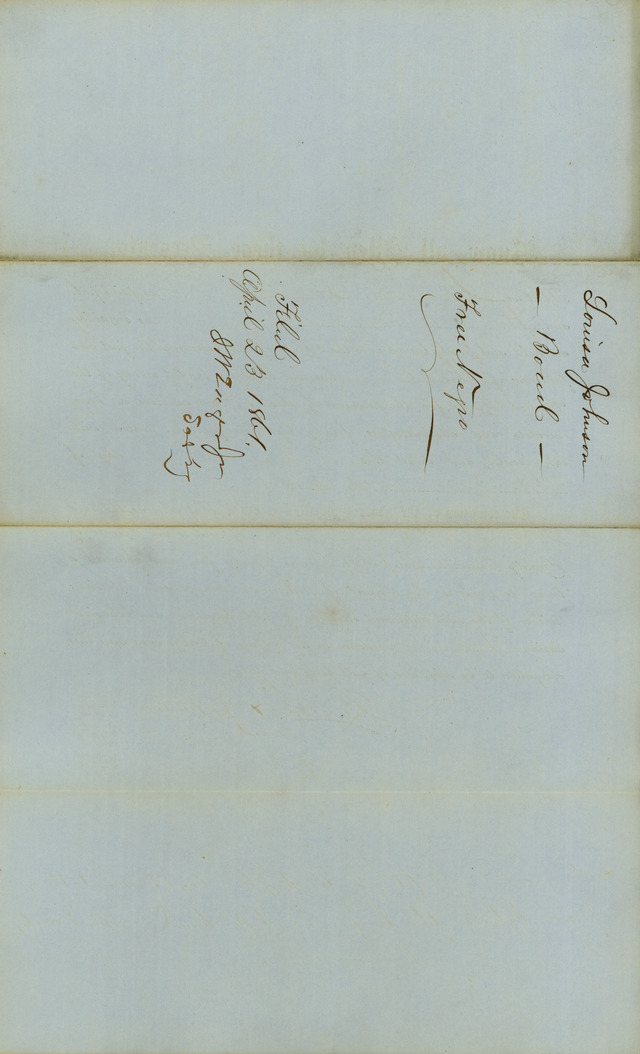 Louisa Johnson
— Bond —
Free Negro
Filed
April 23 1861,